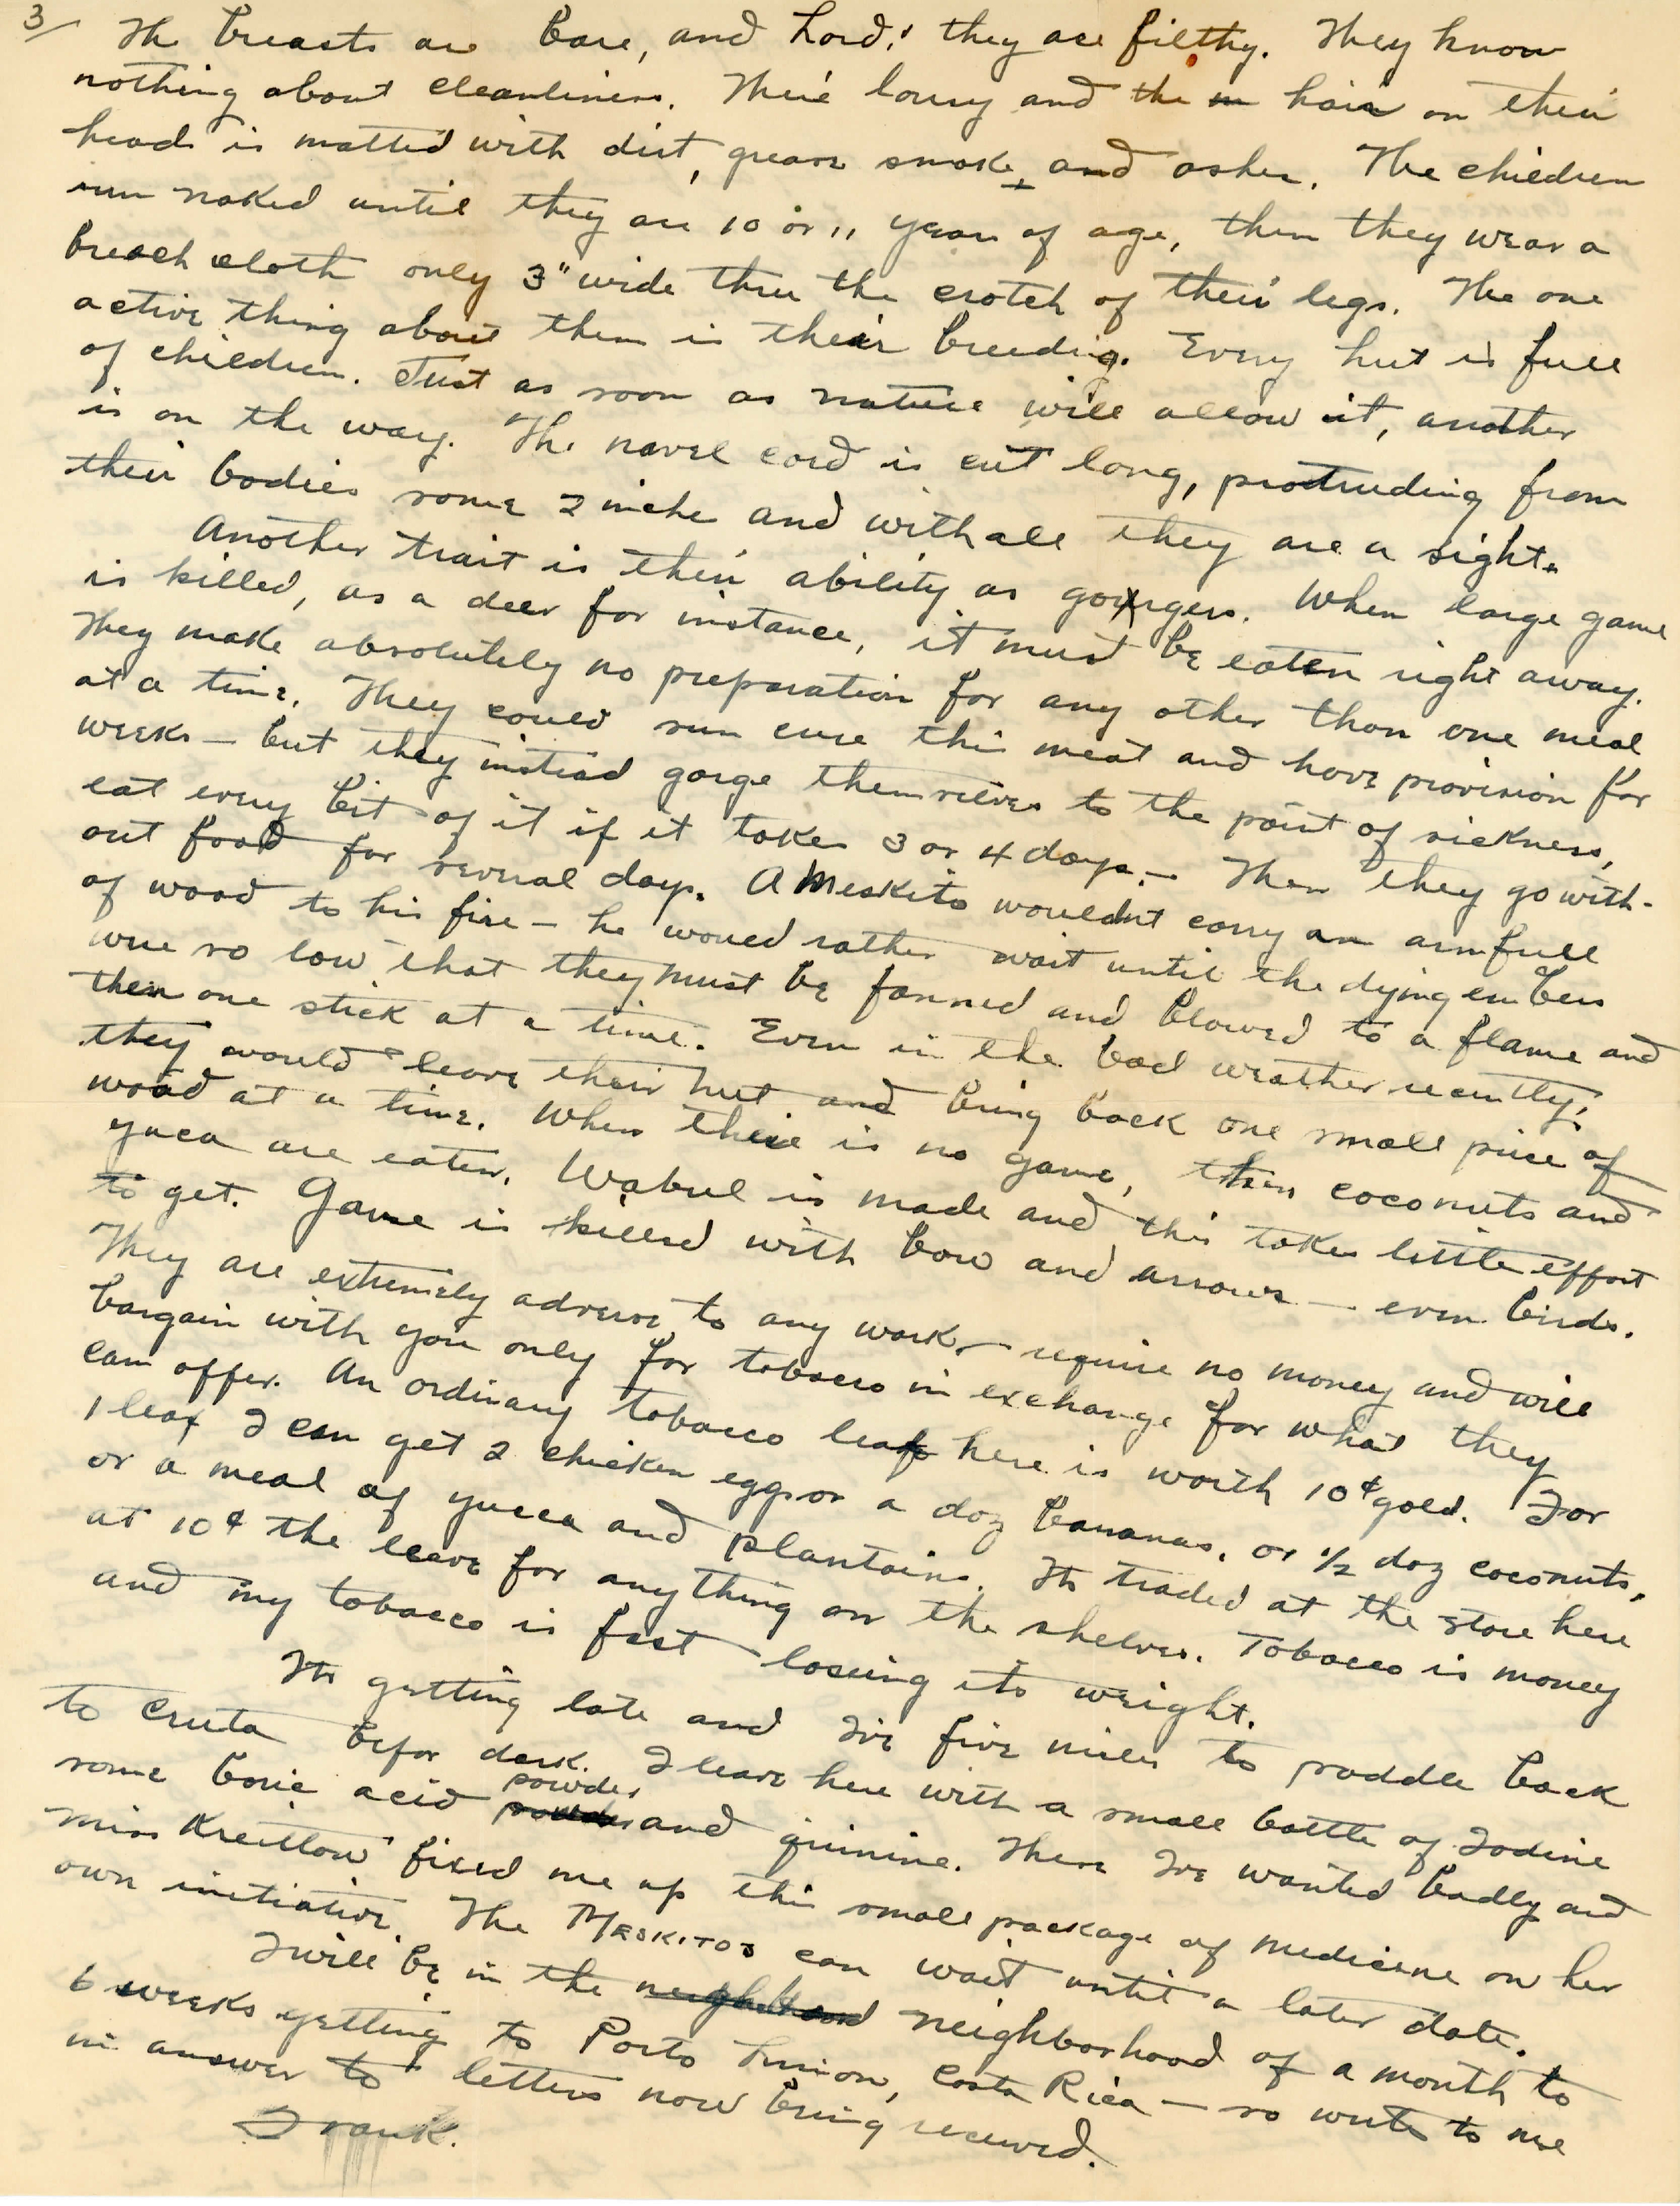 3/ The breasts are bare, and Lord! they are filthy. They know
nothing about cleanliness. There lousy and the in hair on their
heads is matted with dirt, grease smoke, and ashes. The children
run naked until they are 10 or 11 years of age, then they wear a
breach cloth only 3" wide thru the crotch of their legs. The one
active thing about them is their breeding. Every hut is full
of children. Just as soon as nature will allow it, another
is on the way. The navel cord is cut long, protruding from
their bodies some 2 inche and with all they are a sight.
Another trait is their ability as gorgers. When large game
is killed, as a deer for instance, it must be eaten right away.
They make absolutely no preparation for any other than one meal
at a time. They could sun cure this meat and have provision for
weeks — but they instead gorge themselves to the point of sickness,
eat every bit of it if it takes 3 or 4 days. — Then they go with-
out food for several days. A Meskito wouldnt carry an armfull
of wood to his fire — he would rather wait until the dying embers
were so low that they must be fanned and blowed to a flame and
then one stick at a time. Even in the bad weather recently,
they would leave their hut and bring back one small piece of
wood at a time. When there is no game, then coconuts and
yuca are eaten. Wabul is made and this takes little effort
to get. Game is killed with bow and arrows — even birds.
They are extremely adverse to any work, — require no money and will
bargain with you only for tobacco in exchange for what they
can offer. An ordinary tobacco leaf here is worth 10¢ gold. For
1 leaf I can get 2 chicken eggs or a doz bananas, or 1/2 doz coconuts,
or a meal of yucca and plantains. Its traded at the store here
at 10¢ the leave for anything on the shelves. Tobacco is money
and my tobacco is fast loosing its weight.
Its getting late and Ive five miles to paddle back
to Cruta befor dark. I leave here with a small bottle of Iodine
some boric acid powder and quinine. These Ive wanted badly and
Miss Kreitlow fixed me up this small package of medicine on her
own initiative. The Meskitos can wait until a later date.
I will be in the neighborhood of a month to
6 weeks getting to Porto Limon, Costa Rica — so write to me
in answer to letters now being received.
Frank.